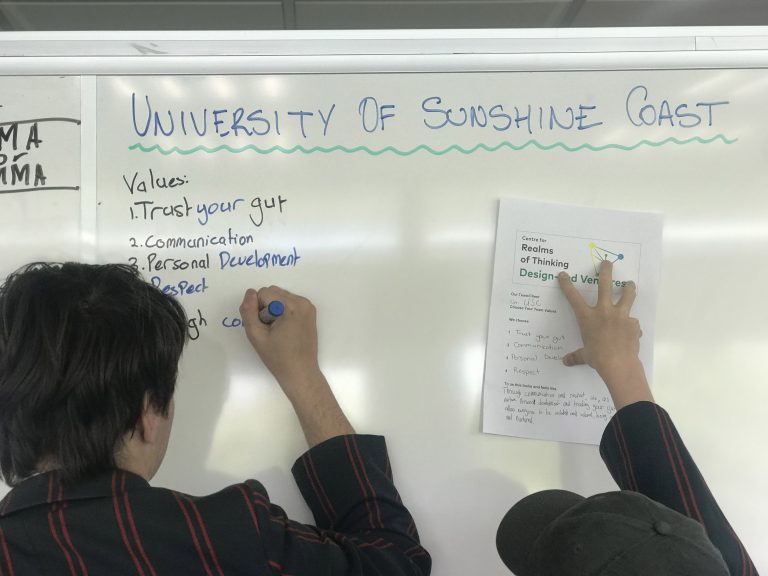 MA
or
MMA
UNIVERSITY OF SUNSHINE COAST
Values:
1. Trust your gut
2. Communication
3. Personal Development
Respect
gh co
Centre for
Realms
of Thinking
Design and Ventures
Our Travel Beer
in USC
Choose Your Team Values
We choose
Trust your gut
Communication
Personal Develo
Respect
To us this looks and feels like
Through communication and respect, we, as